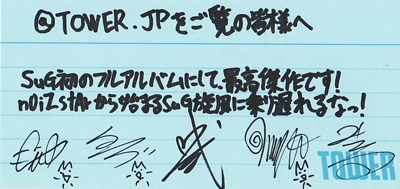 @TOWER.JPをご覧の皆様へ
SuG初のフルアルバムにして、最高傑作です!
nOiZ stAr から始まるSuG旋風に乗り遅れるなっ!
TOWER